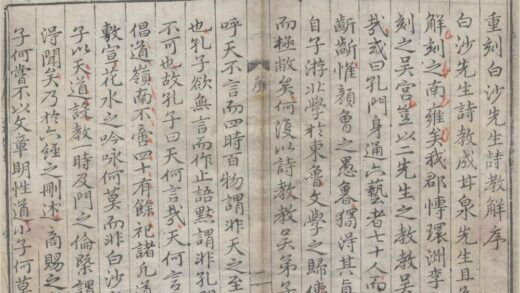 重刻白沙先生詩教解序
白沙先生詩教成甘泉先生且
解刻之南雍矣我郡博環洲李
刻之吳宮豈以二先生之教教吳
哉或曰孔門身通六藝者七十人而
斷斷惟顏魯之愚魯獨得其真
自子游北學於東魯文學之歸傳
而極敝矣何復以詩教教吳弟子
序
呼天不言而四時百物謂非天之至
也孔子欲無言而作止語默謂非孔
不可也故孔子曰天何言哉天何言
倡道嶺南不啻四十有餘祀諸凡
敷宣花水之吟咏何莫而非白沙
子以天道設教一時及門之倫槩謂
得聞矣乃於六經之刪述商賜之
子何嘗不以文章明性道小子何莫